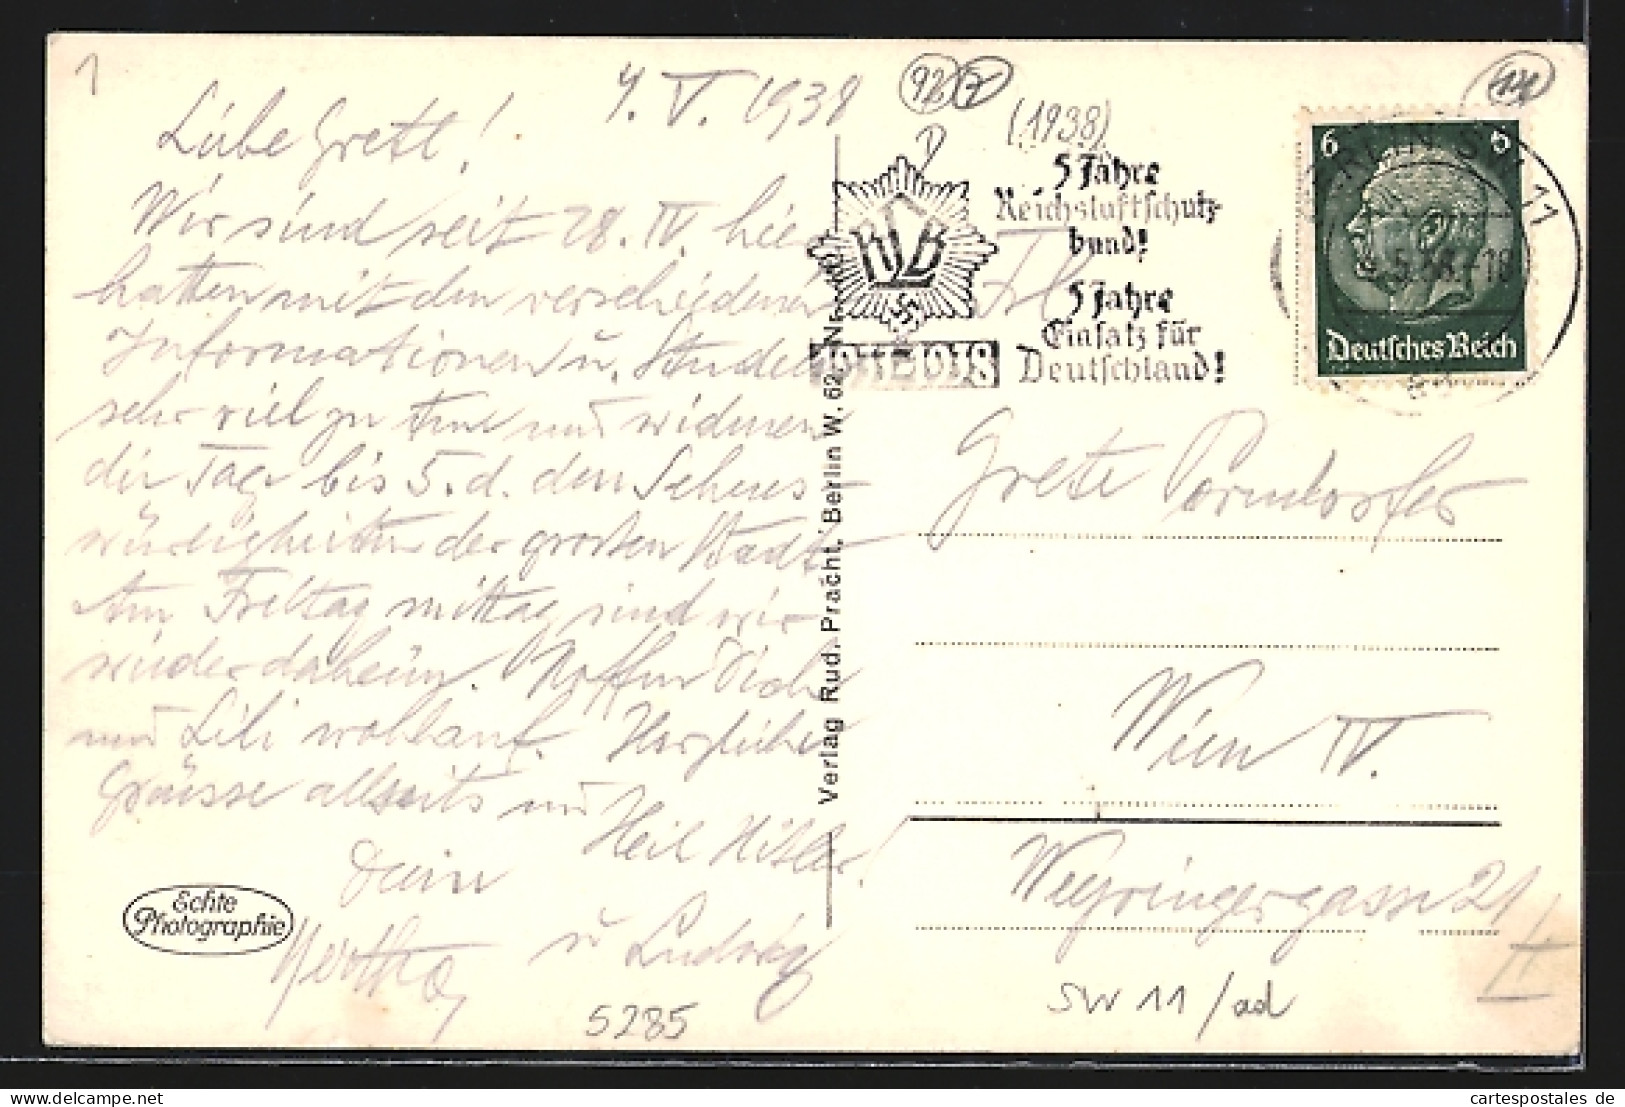 1
4. V. 1938
Liebe Gretl!
Wir sind seit 28. IV. hier
hatten mit den verschiedenen
Informationen u. Studien
sehr viel zu tun und widmen
die Tage bis 5. d. den Sehens-
würdigkeiten der großen Stadt
Am Freitag mittag sind wir
wieder daheim. Hoffen Dich
und Lili wohlauf. Herzliche
Grüsse allseits und
Heil Hitler!
Dein
Hertha
u Ludwig
Echte
Photographie
5285
Verlag Rud. Pracht, Berlin W. 62,
92 7
(1938)
D
RLB
5 Jahre
Reichsluftschutz
bund!
5 Jahre
Einsatz für
Deutschland!
6 6
Deutsches Reich
BERLIN SW 11
Frl
Grete Porndorfer
Wien IV.
Weyringergasse 21
II
SW 11/ad
www.delcampe.net
cartespostales de